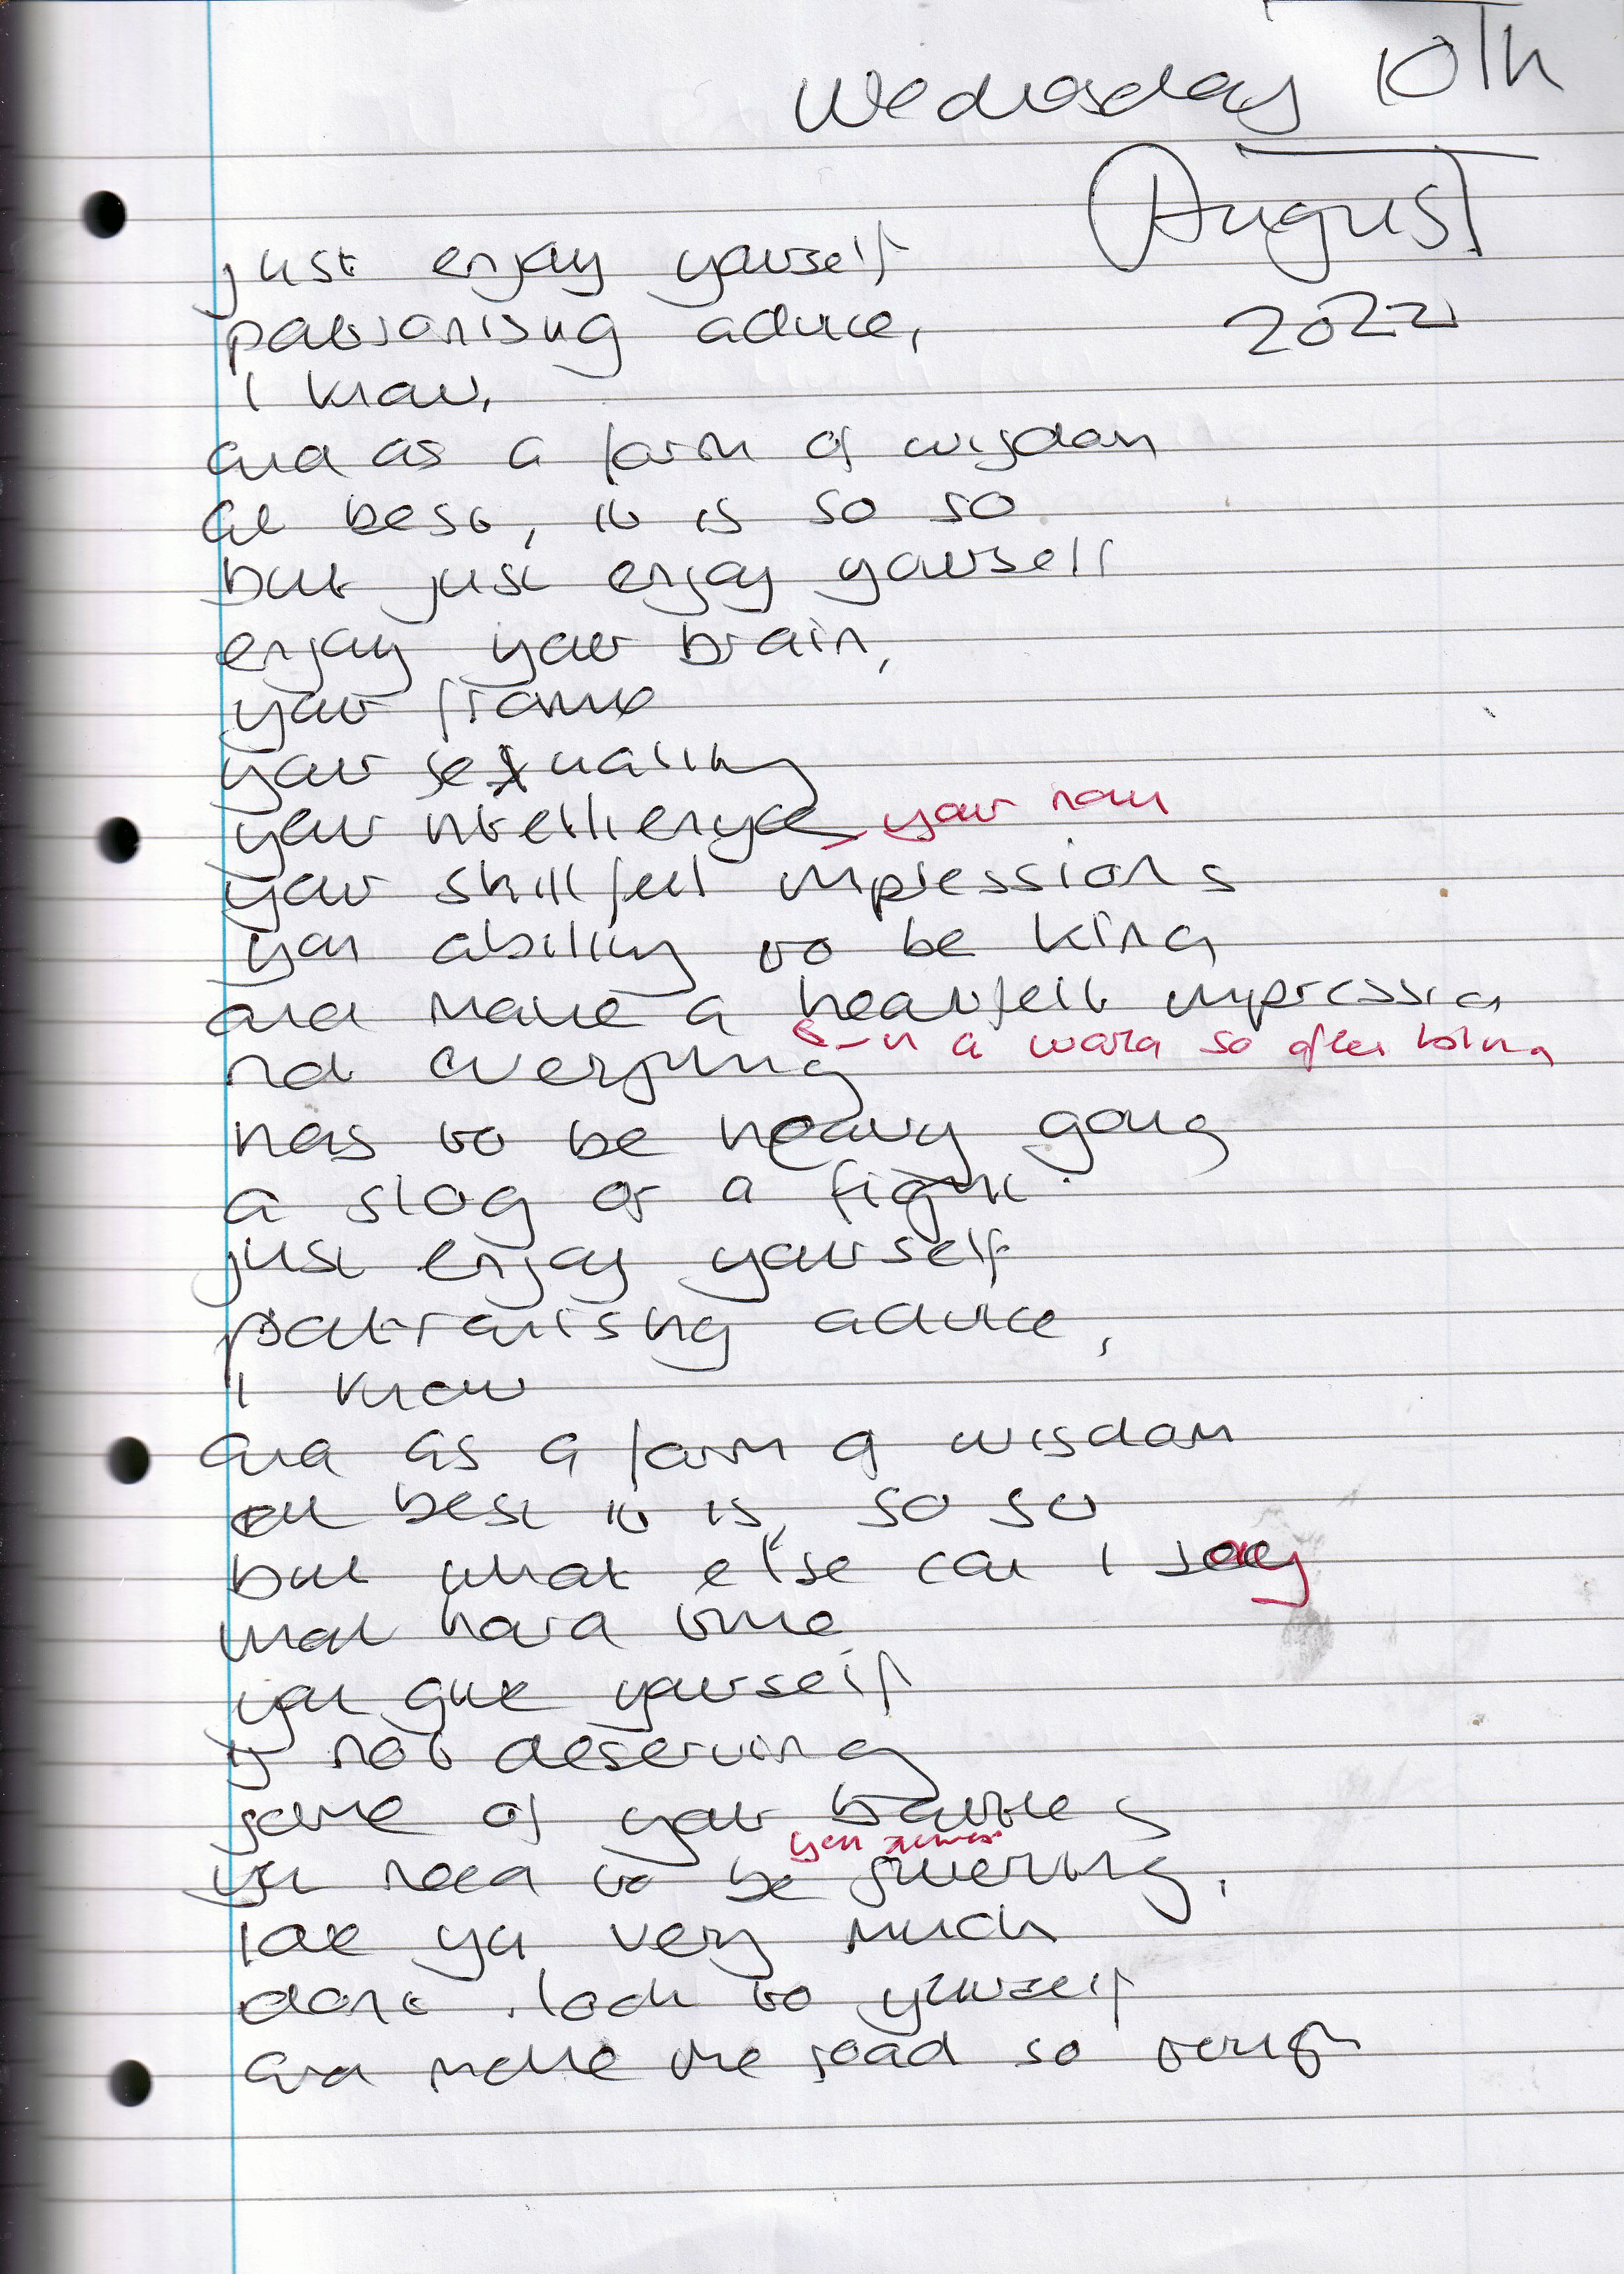 Wednesday 10th
August
2022
just enjoy yourself
patronising advice,
I know,
and as a form of wisdom
at best, it is so so
but just enjoy yourself
enjoy your brain,
your frame
your sexuality
your intelligence your
your skillful impressions
your ability to be kind
and make a heartfelt impression
in a world so often
not everything
has to be heavy going
a slog or a fight
just enjoy yourself
patronising advice,
I know
and as a form of wisdom
at best it is, so so
but what else can I say
what hard time
you give yourself
is not deserving
some of your troubles
you need to be
love you very much
dont look to yourself
and make the road so rough